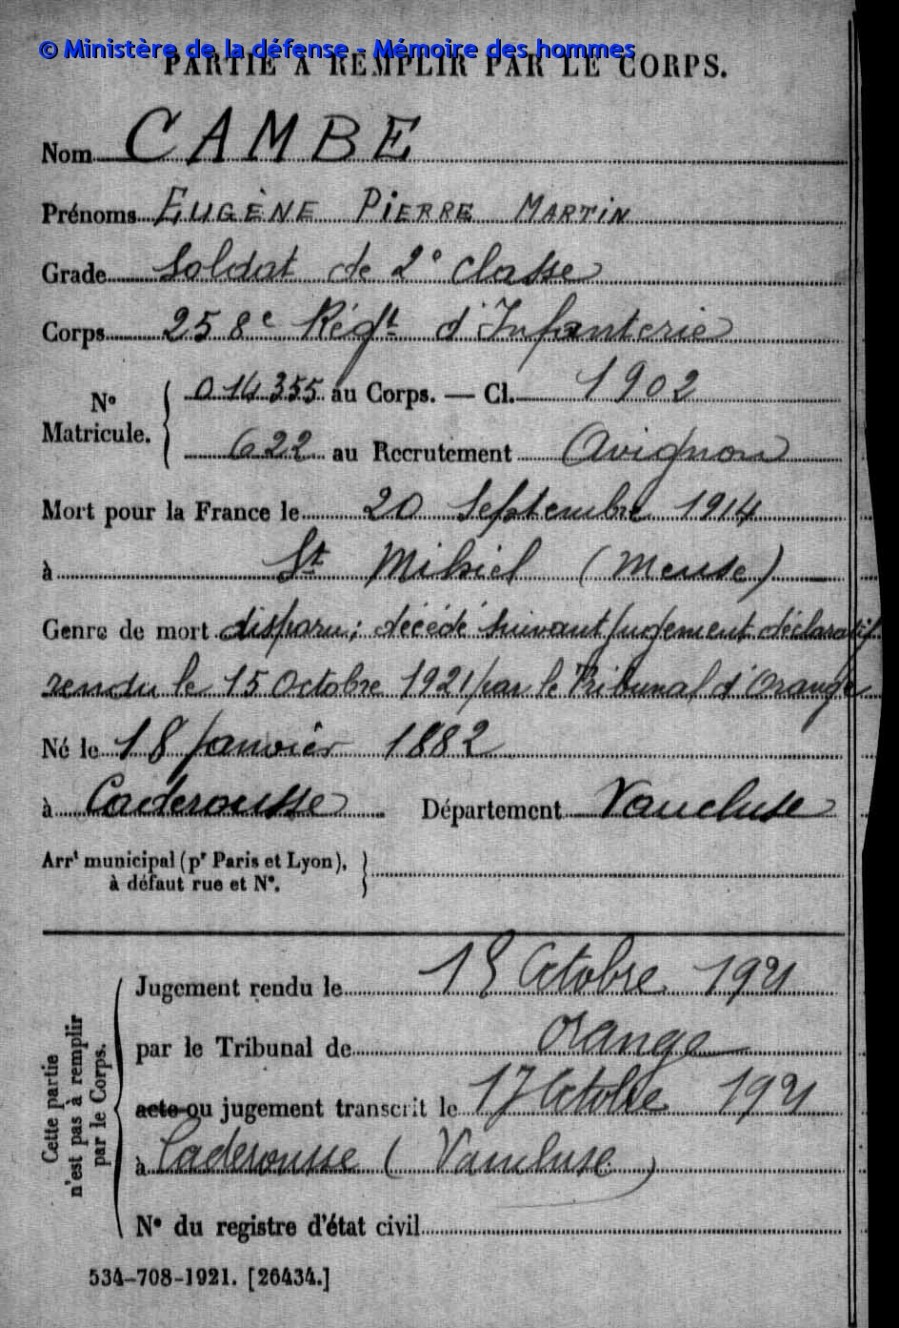 © Ministère de la défense - Mémoire des hommes
PARTIE A REMPLIR PAR LE CORPS.
Nom CAMBE
Prénoms EUGÈNE PIERRE MARTIN
Grade Soldat de 2e classe
Corps 258e Régt d'Infanterie
No Matricule. { 014355 au Corps. — Cl. 1902
622 au Recrutement Avignon
Mort pour la France le 20 Septembre 1914
à St Mihiel (Meuse)
Genre de mort disparu; décédé suivant jugement déclaratif
rendu le 15 Octobre 1921 par le Tribunal d'Orange
Né le 18 Janvier 1882
à Caderousse Département Vaucluse
Arrt municipal (pr Paris et Lyon),
à défaut rue et No. }
Cette partie n'est pas à remplir par le Corps.
Jugement rendu le 15 Octobre 1921
par le Tribunal de Orange
acte ou jugement transcrit le 17 Octobre 1921
à Caderousse (Vaucluse)
No du registre d'état civil
534-708-1921. [26434.]